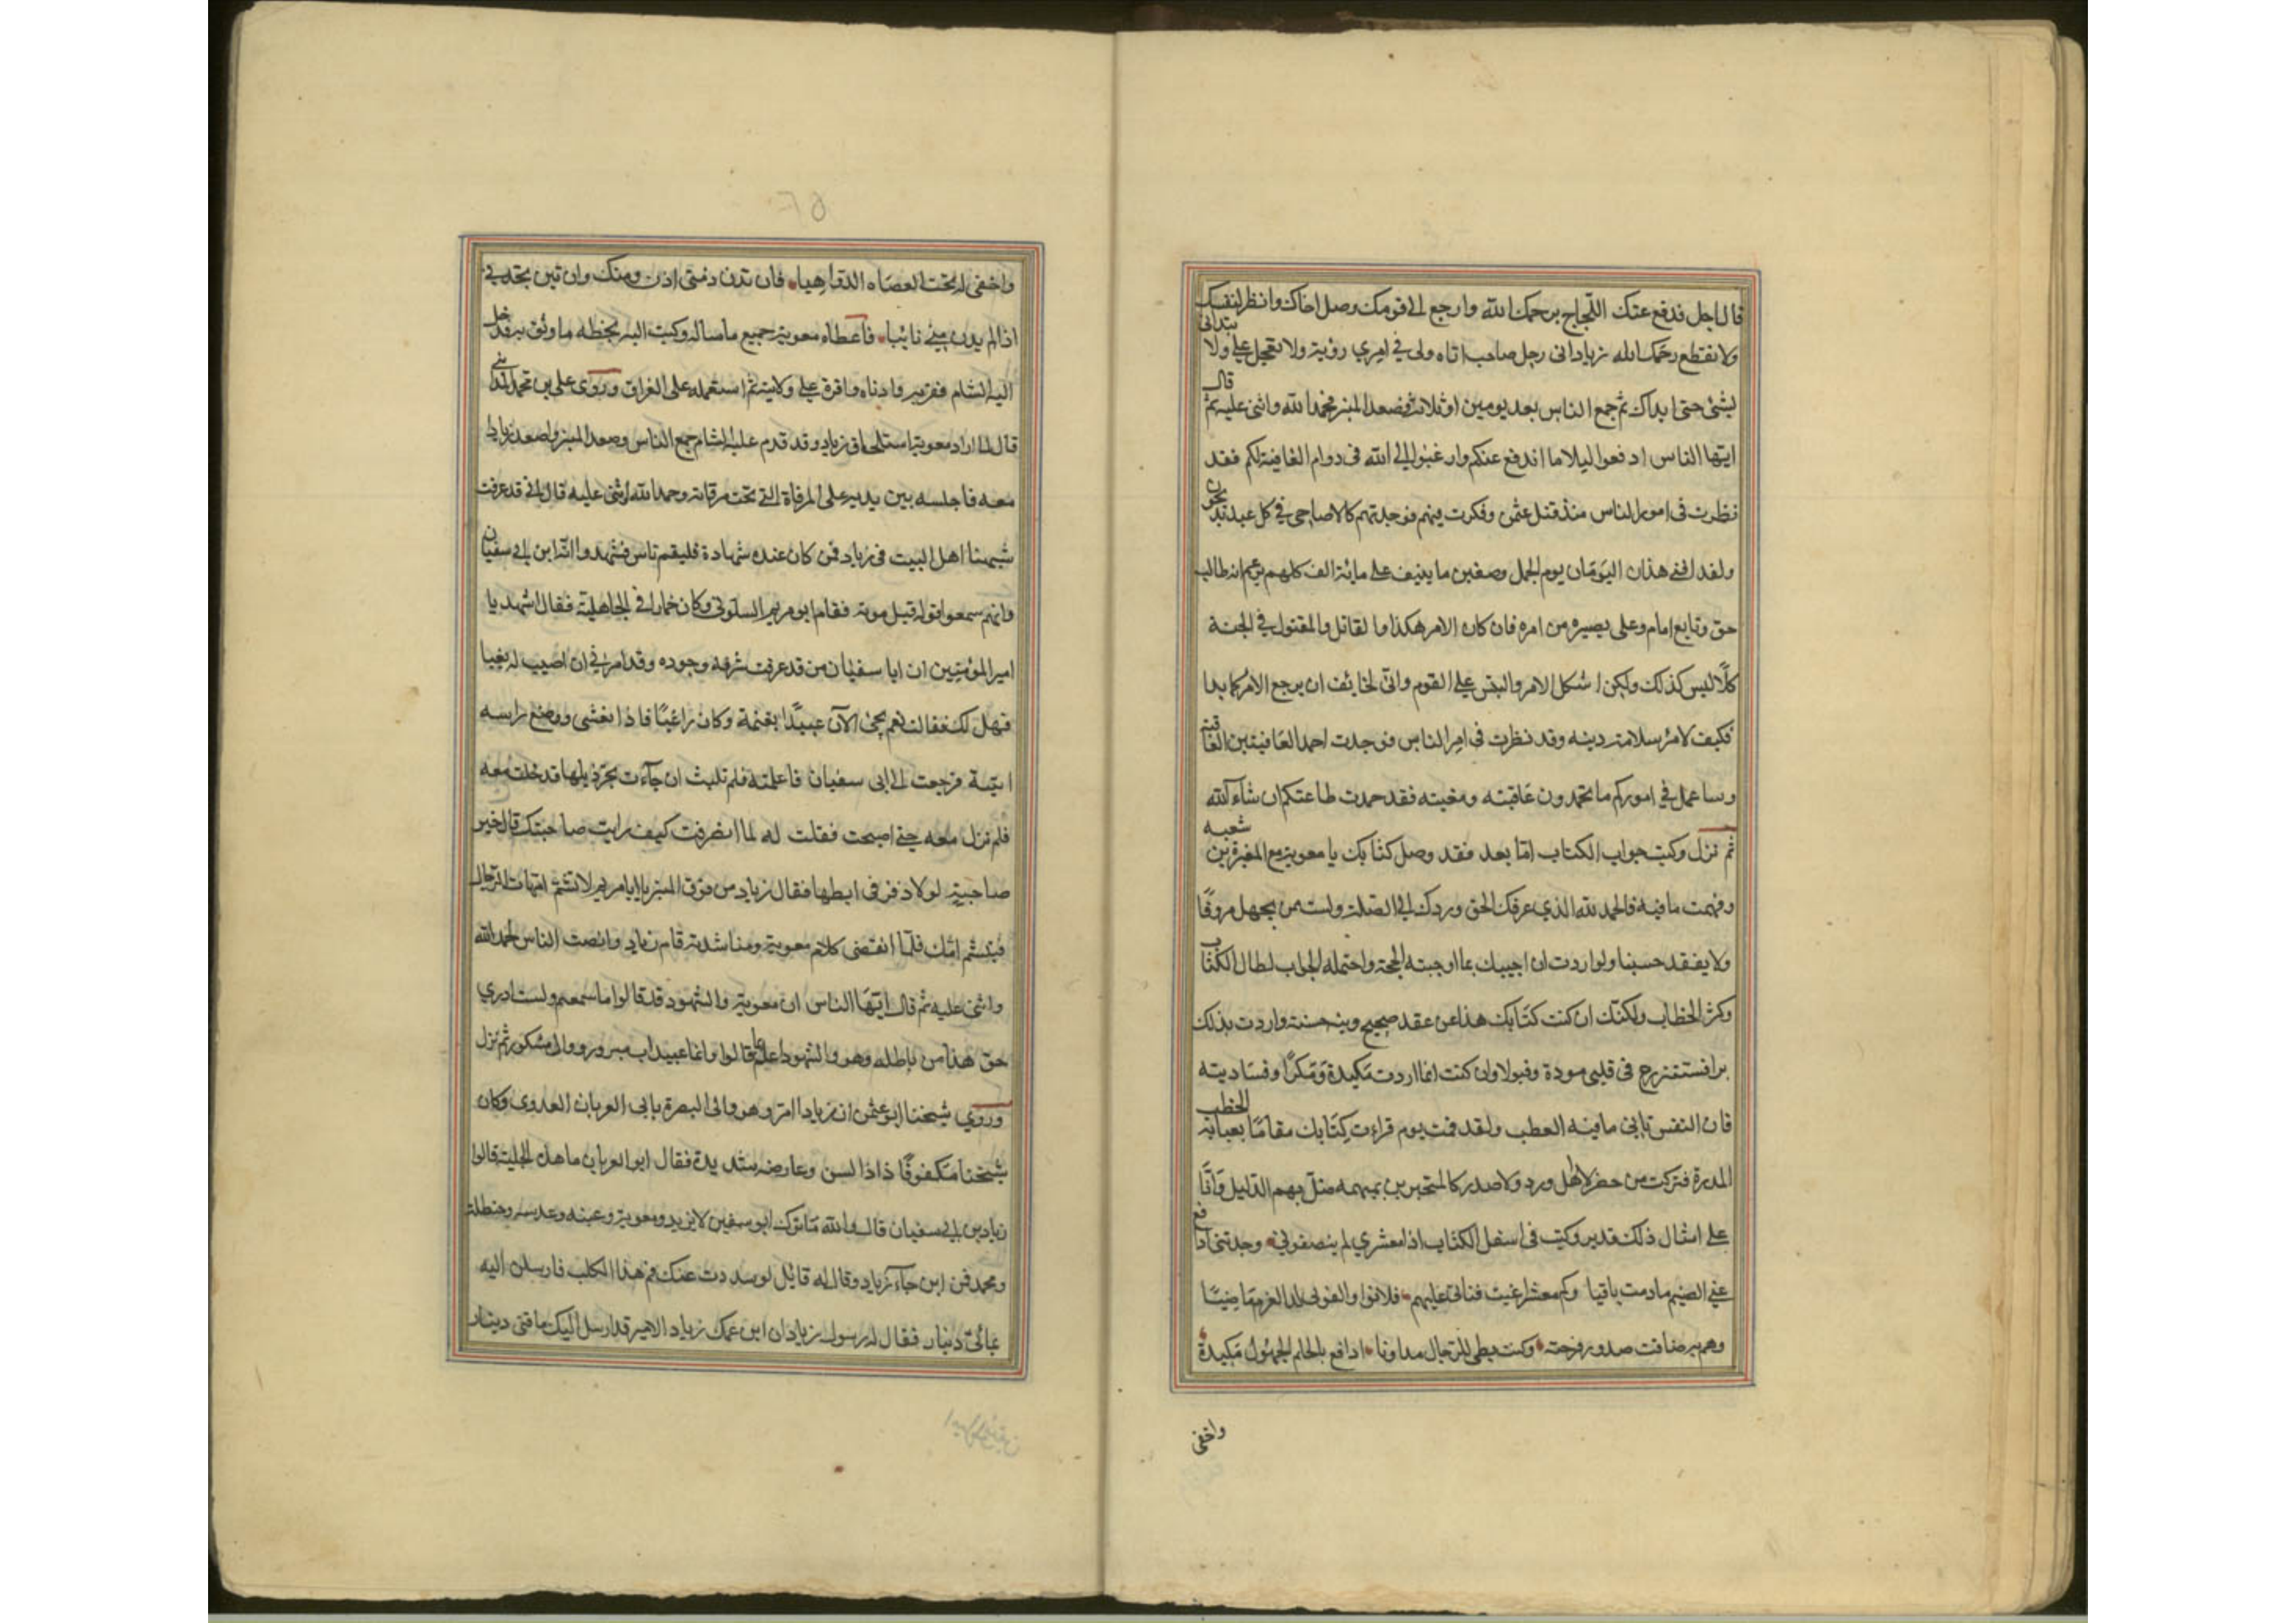 قال اجل فدفع عنك اللجاج يرحمك الله وارجع الى قومك وصل اخاك وانظر لنفسك
ولا تقطع رحمك الله زياد انى رجل صاحب اناه ولى فى امرى روية ولا تعجل على ولا تبتدانى
بشئ حتى ابداك ثم جمع الناس بعد يومين او ثلاث فصعد المنبر فحمد الله واثنى عليه ثم قال
ايها الناس ادفعوا البلا ما اندفع عنكم وارغبوا الى الله فى دوام العافية لكم فقد
نظرت فى امور الناس منذ قتل عثمن وفكرت فيهم فوجدتهم كالاضاحى فى كل عيد يذبحون
ولقد افنى هذان اليومان يوم الجمل وصفين ما ينيف على مائة الف كلهم يزعم انه طالب
حق وتابع امام وعلى بصيره من امره فان كان الامر هكذا فا لقاتل والمقتول فى الجنة
كلا ليس كذلك ولكن اشكل الامر والتبس على القوم وانى لخائف ان يرجع الامر كما بدا
فكيف لامرئ سلامة دينه وقد نظرت فى امر الناس فوجدت احمد العافيتين العاقبة
وساعمل فى اموركم ما تحمدون عاقبته ومغبته فقد حمدت طاعتكم ان شاء الله
ثم نزل وكتب جواب الكتاب اما بعد فقد وصل كتابك يا معوية مع المغيرة بن شعبه
وفهمت ما فيه فالحمد لله الذى عرفك الحق وردك الى الصلة ولست من يجهل معروفا
ولا يفقد حسبا ولو اردت ان اجيبك بما اوجبته الحجة واحتمله الجواب لطال الكتاب
وكثر الخطاب ولكنك ان كنت كتابك هذا عن عقد صحيح ونية حسنة واردت بذلك
برا فستزرع فى قلبى مودة وقبولا وان كنت انما اردت مكيدة ومكرا وفساد نيته
فان النفس تابى ما فيه العطب ولقد قمت يوم قراءت كتابك مقاما يعبا به الخطيب
المدرة فتركت من حضر لا اهل ورد ولا صدر كالمتحيرين بمهمه ضل بهم الدليل وانا
على امثال ذلك قدير وكتب فى اسفل الكتاب اذا معشرى لم ينصفونى وجدتنى ادافع
عنى الضيم ما دمت باقيا وكم معشر اعيت قناتى عليهم فلاقوا والفونى لدا العزم ماضيا
وهم به ضاقت صدور فرجته وكنت بطبى للرجال مداويا ادافع بالحلم الجهول مكيدة
واخفى
واخفى له تحت العضاه الدواهيا فان تدن منى ادن ومنك وان تبن تجدنى
اذا لم يدن منى نائيا فاعطاه معوية جميع ما ساله وكتب اليه بخطه ما وثق به فدخل
اليه الشام فقربه وادناه واقره على ولايته ثم استعمله على العراق وروى على بن محمد المداينى
قال لما اراد معوية استلحاق زياد وقد قدم عليه الشام جمع الناس وصعد المنبر واصعد زيادا
معه فاجلسه بين يديه على المرقاة التى تحت مرقاته وحمد الله واثنى عليه قال انى قد عرفت
شبهنا اهل البيت فى زياد فمن كان عنده شهادة فليقم ناس فشهدوا انه ابن ابى سفيان
وانهم سمعوا قوله قبل موته فقام ابو مريم السلولى وكان خمارا فى الجاهلية فقال اشهد يا
امير المؤمنين ان ابا سفيان من قد عرفت شرفه وجوده وقد امرنى ان اصيب له بغيا
فهل لك فقالت نعم يجئ الآن عبيد بغنمه وكان راعيا فاذا تعشى ووضع راسه
اتيته فرجعت الى ابى سفيان فاعلمته فلم تلبث ان جآءت تجر ذيلها فدخلت معه
فلم تزل معه حتى اصبحت فقلت له لما انصرفت كيف رايت صاحبتك قال خير
صاحبة لولا ذفر فى ابطها فقال زياد من فوق المنبر يا ابا مريم لا تشتم امهات الرجال
فتشتم امك فلما انقضى كلام معوية ومناشدته قام زياد وانصت الناس فحمد الله
واثنى عليه ثم قال ايها الناس ان معوية والشهود قد قالوا ما سمعتم ولست ادرى
حق هذا من باطله وهو والشهود اعلم بما قالوا وانما عبيد اب مبرور ووال مشكور ثم نزل
وروى شيخنا ابو عثمن ان زيادا امر وهو والى البصرة بابى العريان العدوى وكان
شيخنا مكفوفا ذا السن وعارضه شديدة فقال ابو العريان ما هذه الجلبة قالوا
زياد بن ابى سفيان قال والله ما ترك ابو سفين لا يزيد ومعوية وعتبه وعنبسه وحنظله
ومحمد فمن اين جآء زياد وقال له قائل لو سددت عنك فم هذا الكلب فارسل اليه
بمائتى دينار فقال له رسول زياد ان ابن عمك زياد الامير قد ارسل اليك مائتى دينار